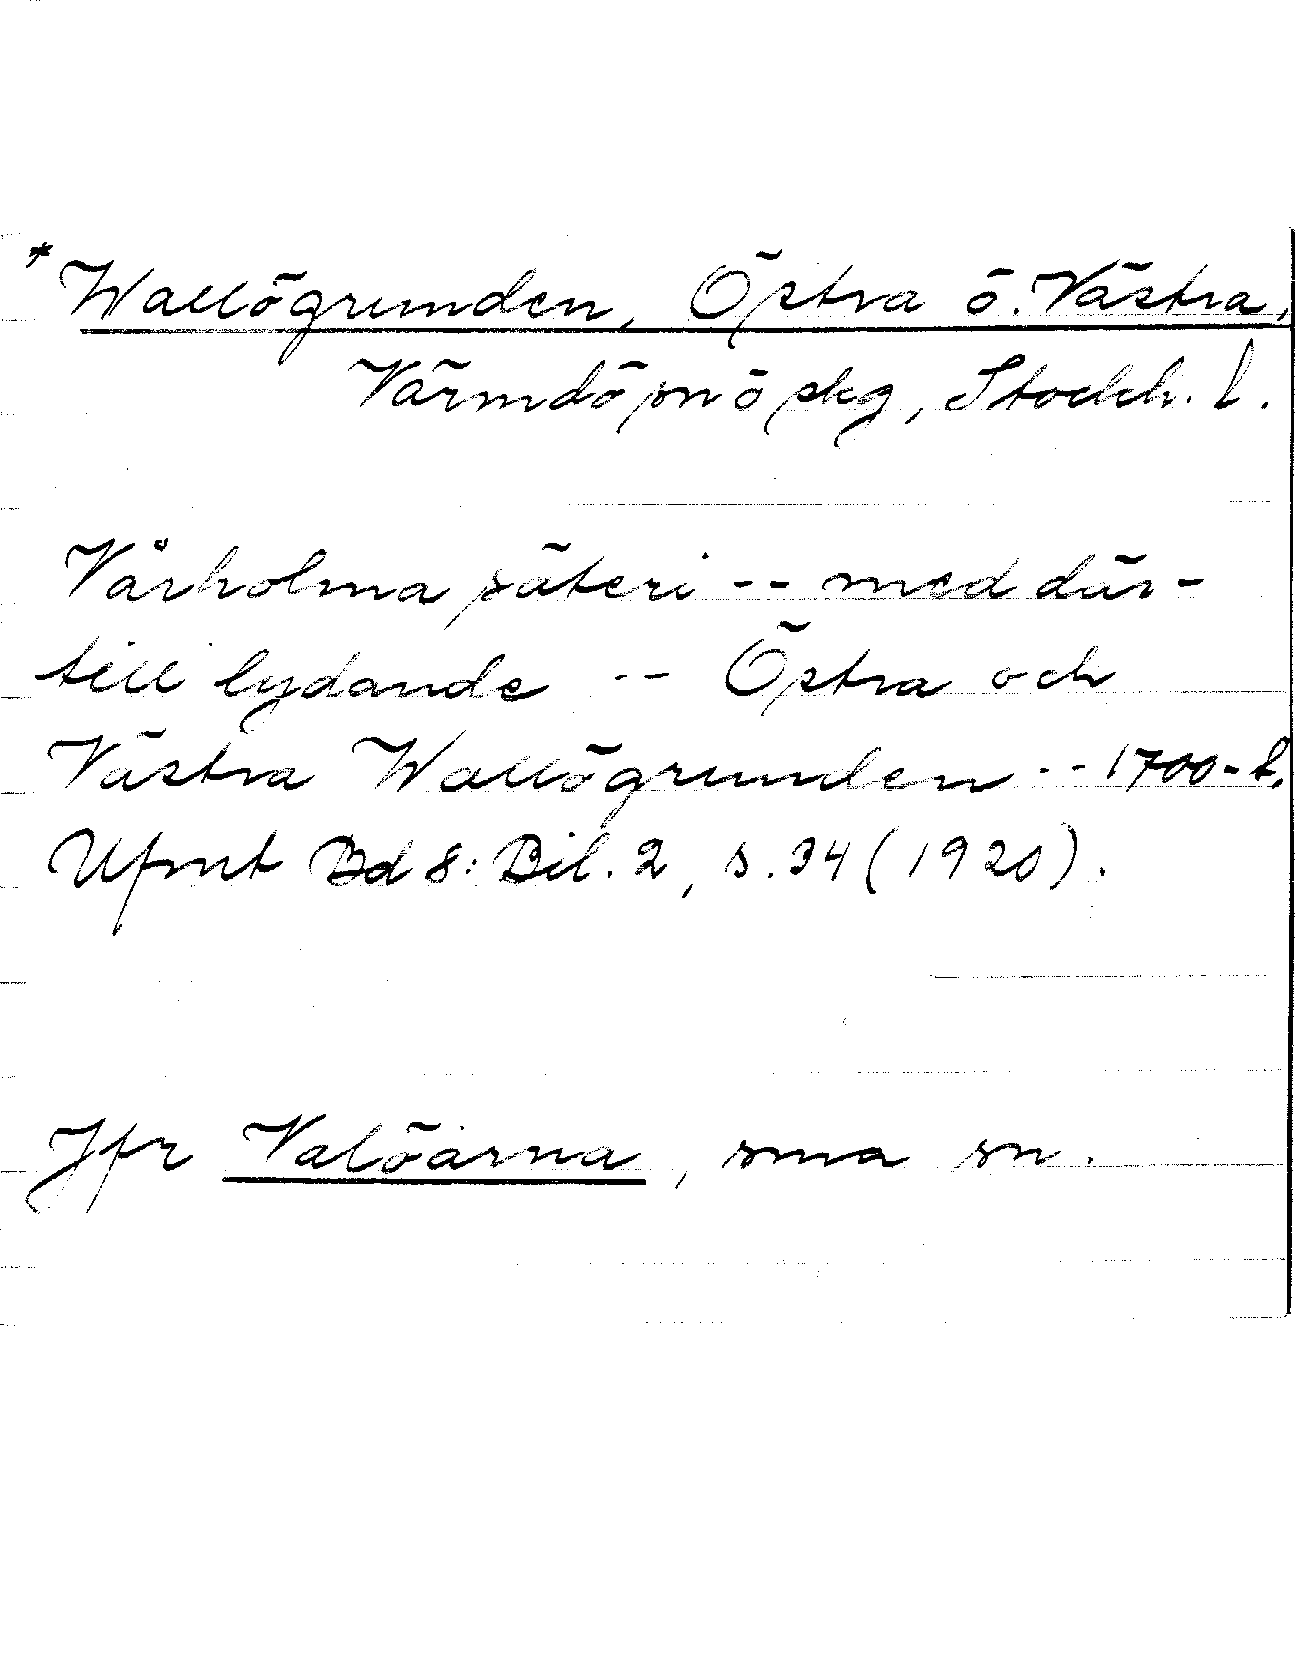 * Wallögrunden, Östra o. Västra,
Värmdö sn o skg, Stockh. l.
Vårholma säteri -- med där-
till lydande -- Östra och
Västra Wallögrunden -- 1700-t.
Ufmt Bd 8: Bil. 2, s. 34 (1920).
Jfr Valöarna, sma sn.